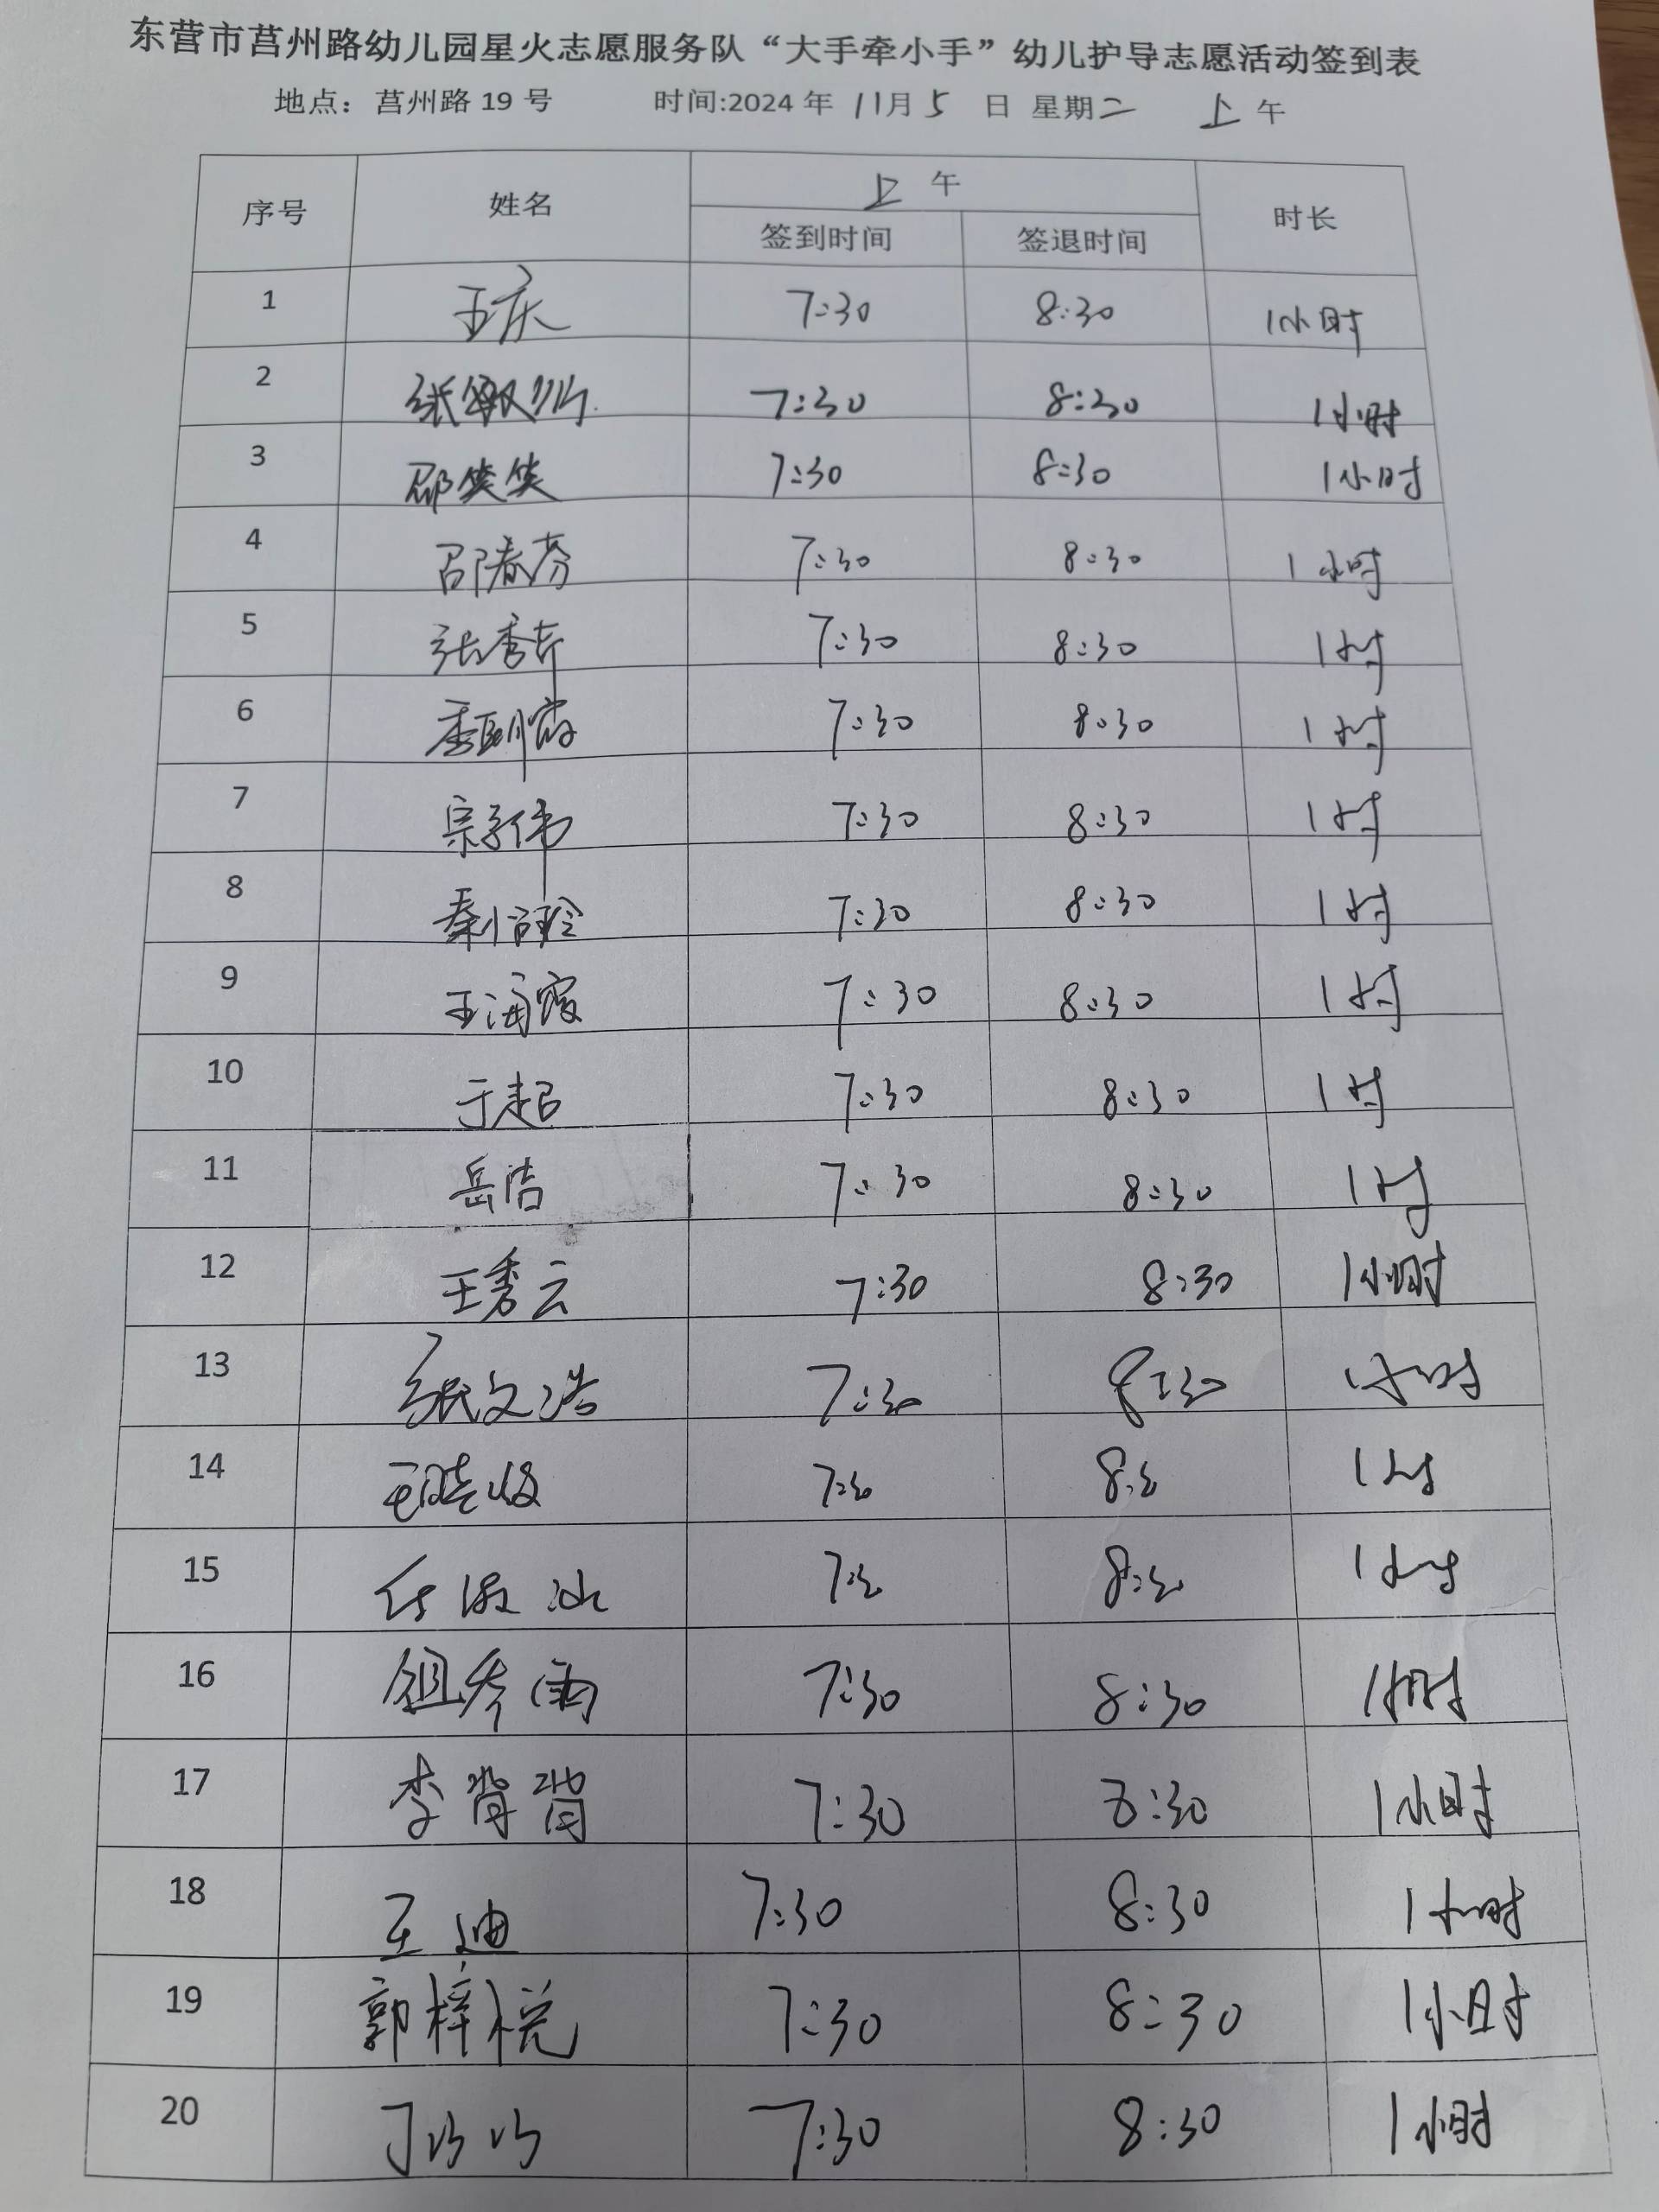 东营市莒州路幼儿园星火志愿服务队“大手牵小手”幼儿护导志愿活动签到表
地点：莒州路 19 号 时间:2024 年 11月 5 日 星期二 上午
序号 姓名 上午 时长
签到时间 签退时间
1 王庆 7:30 8:30 1小时
2 7:30 8:30 1小时
3 邵笑笑 7:30 8:30 1小时
4 邵春芬 7:30 8:30 1小时
5 张秀卉 7:30 8:30 1小时
6 7:30 8:30 1小时
7 宗子伟 7:30 8:30 1小时
8 7:30 8:30 1小时
9 王海霞 7:30 8:30 1小时
10 于超 7:30 8:30 1小时
11 岳洁 7:30 8:30 1小时
12 王秀云 7:30 8:30 1小时
13 张文浩 7:30 8:30 1小时
14 7:30 8:30 1小时
15 7:30 8:30 1小时
16 7:30 8:30 1小时
17 李背背 7:30 8:30 1小时
18 王迪 7:30 8:30 1小时
19 郭梓悦 7:30 8:30 1小时
20 7:30 8:30 1小时